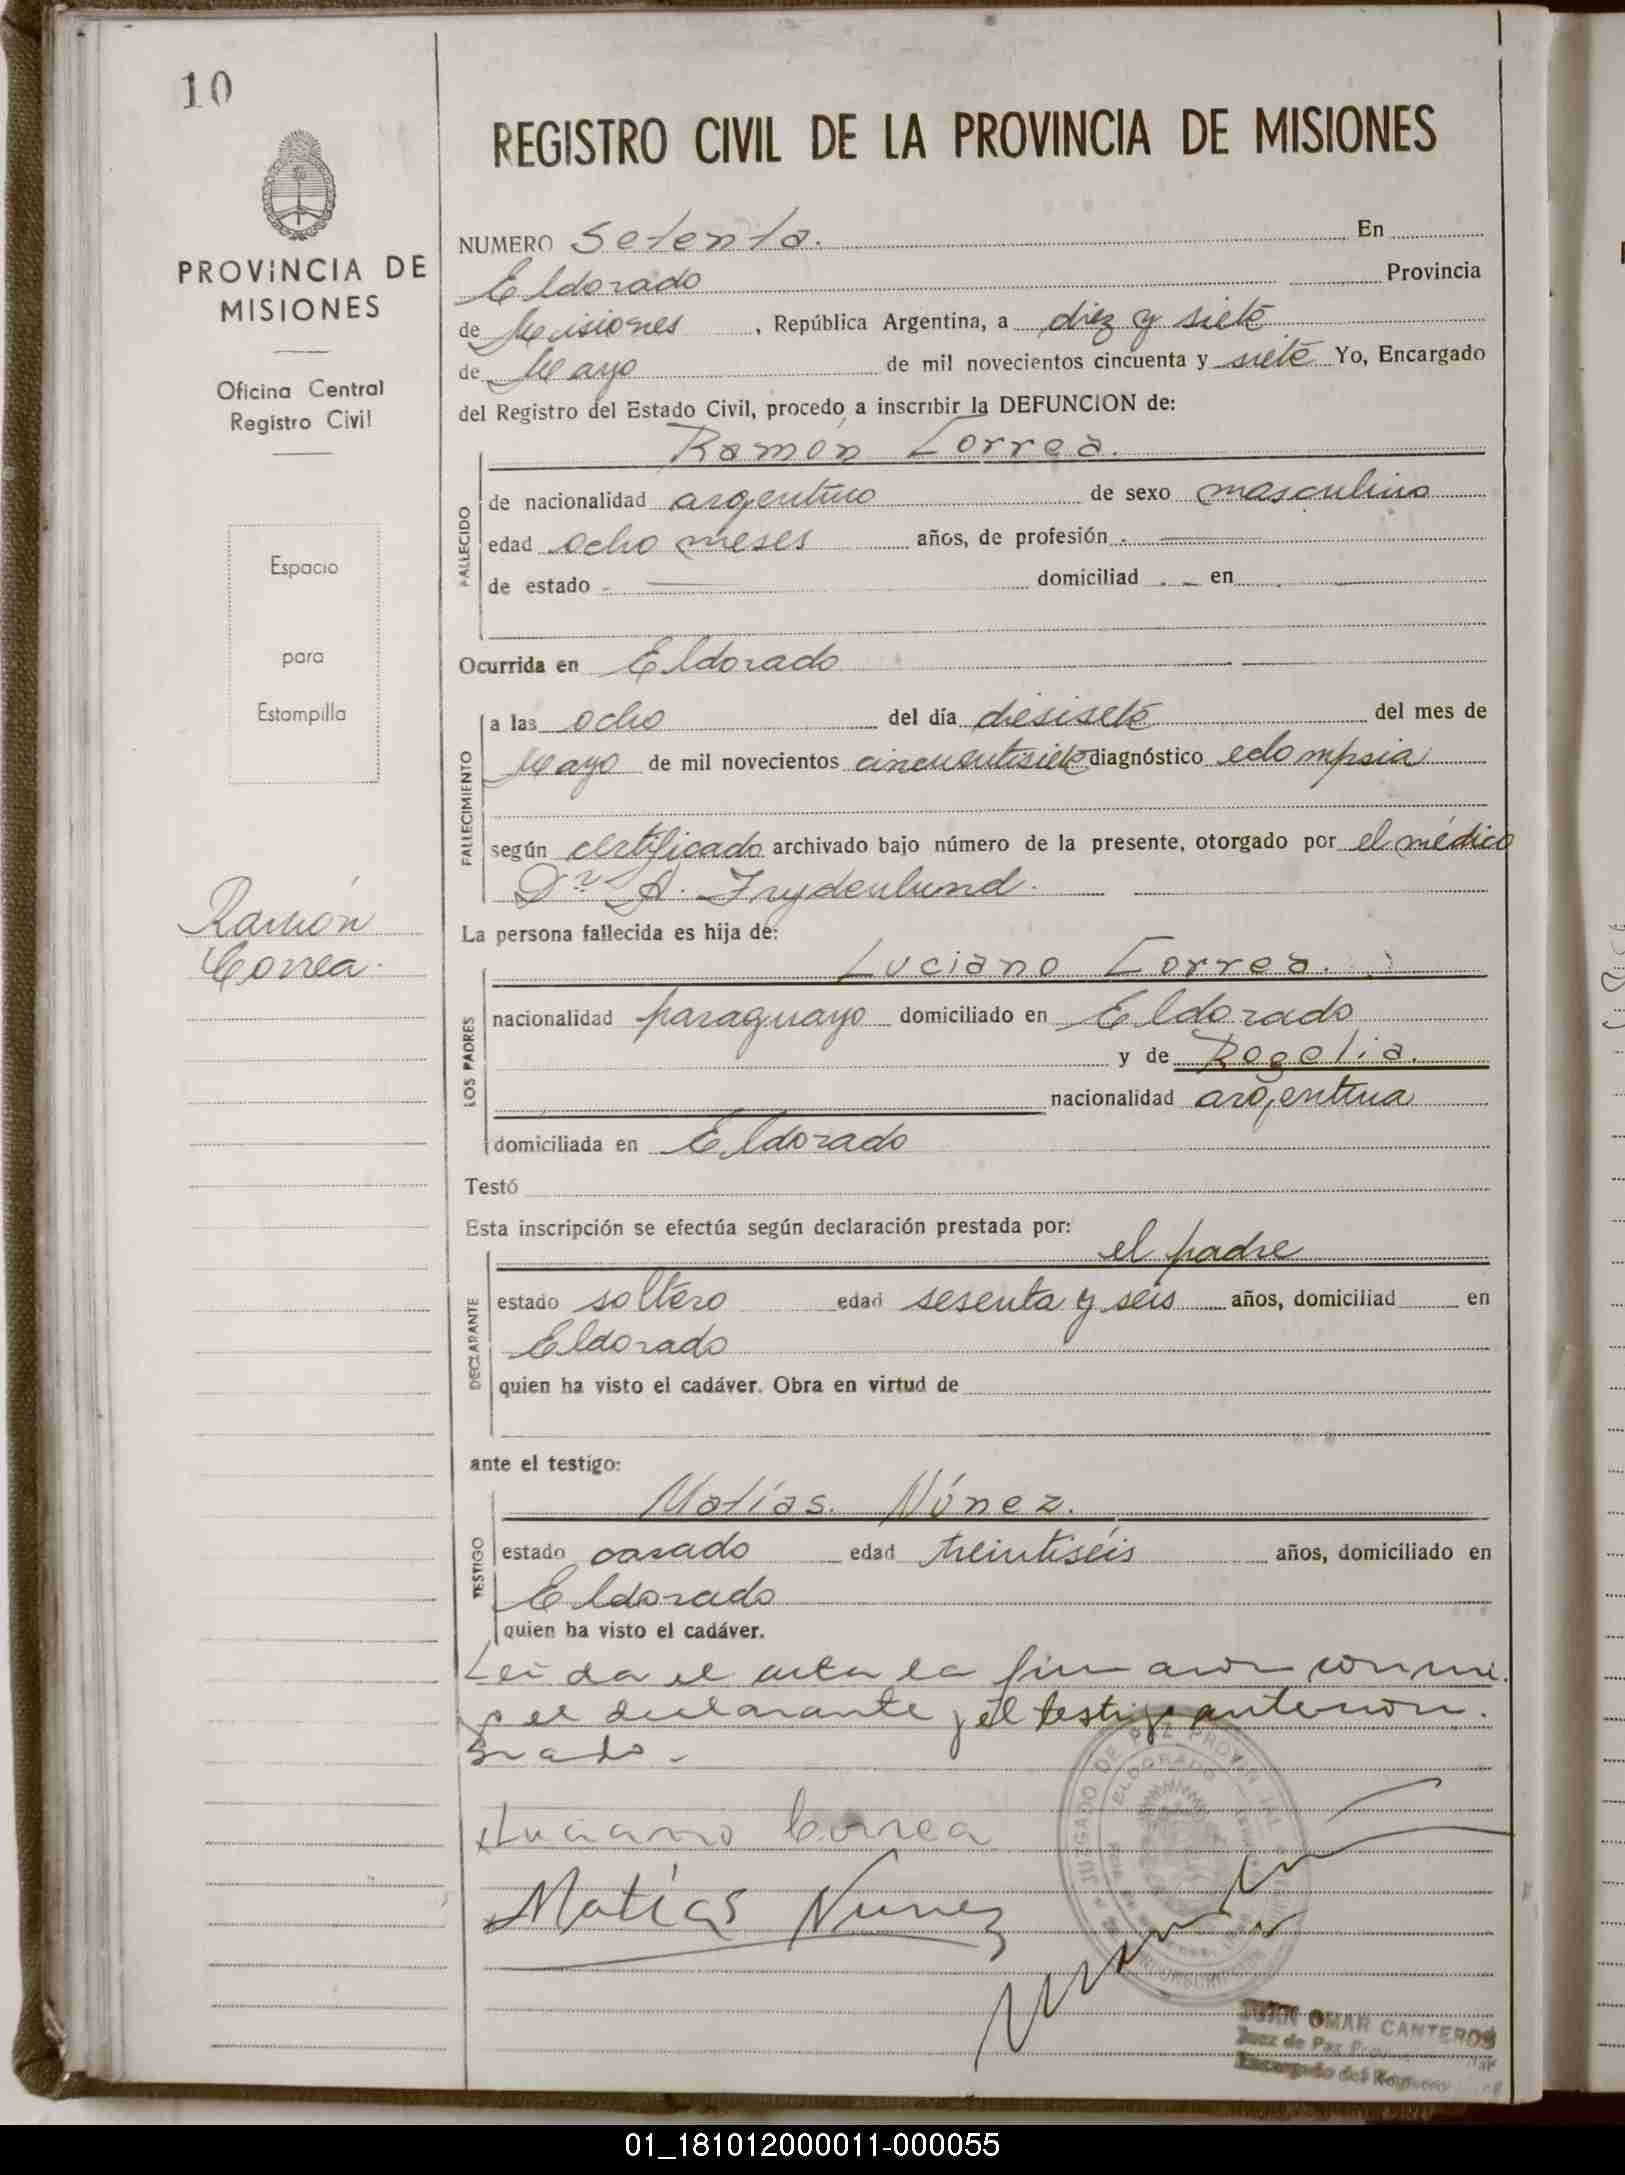 10
REGISTRO CIVIL DE LA PROVINCIA DE MISIONES
PROVINCIA DE
MISIONES
Oficina Central
Registro Civil
Espacio
para
Estampilla
Ramón
Correa.
NUMERO Setenta. En
Eldorado Provincia
de Misiones, República Argentina, a diez y siete
de Mayo de mil novecientos cincuenta y siete Yo, Encargado
del Registro del Estado Civil, procedo a inscribir la DEFUNCION de:
Ramón Correa.
FALLECIDO
de nacionalidad argentino de sexo masculino
edad ocho meses años, de profesión
de estado domiciliad en
Ocurrida en Eldorado
FALLECIMIENTO
a las ocho del día diesisete del mes de
Mayo de mil novecientos cincuentisiete diagnóstico eclampsia
según certificado archivado bajo número de la presente, otorgado por el médico
Dr A. Frydenlund.
La persona fallecida es hija de:
Luciano Correa.
LOS PADRES
nacionalidad paraguayo domiciliado en Eldorado
y de Rogelia.
nacionalidad argentina
domiciliada en Eldorado
Testó
Esta inscripción se efectúa según declaración prestada por:
el padre
DECLARANTE
estado soltero edad sesenta y seis años, domiciliad en
Eldorado
quien ha visto el cadáver. Obra en virtud de
ante el testigo:
Matías. Núnez.
TESTIGO
estado casado edad treintiséis años, domiciliado en
Eldorado
quien ha visto el cadáver.
Leida el acta la firmaron conmi
go el declarante y el testigo
Luciano Correa
Matías Nunez
JUZGADO DE PAZ
ELDORADO
JUAN OMAR CANTEROS
Juez de Paz
Encargado del Registro
01_181012000011-000055